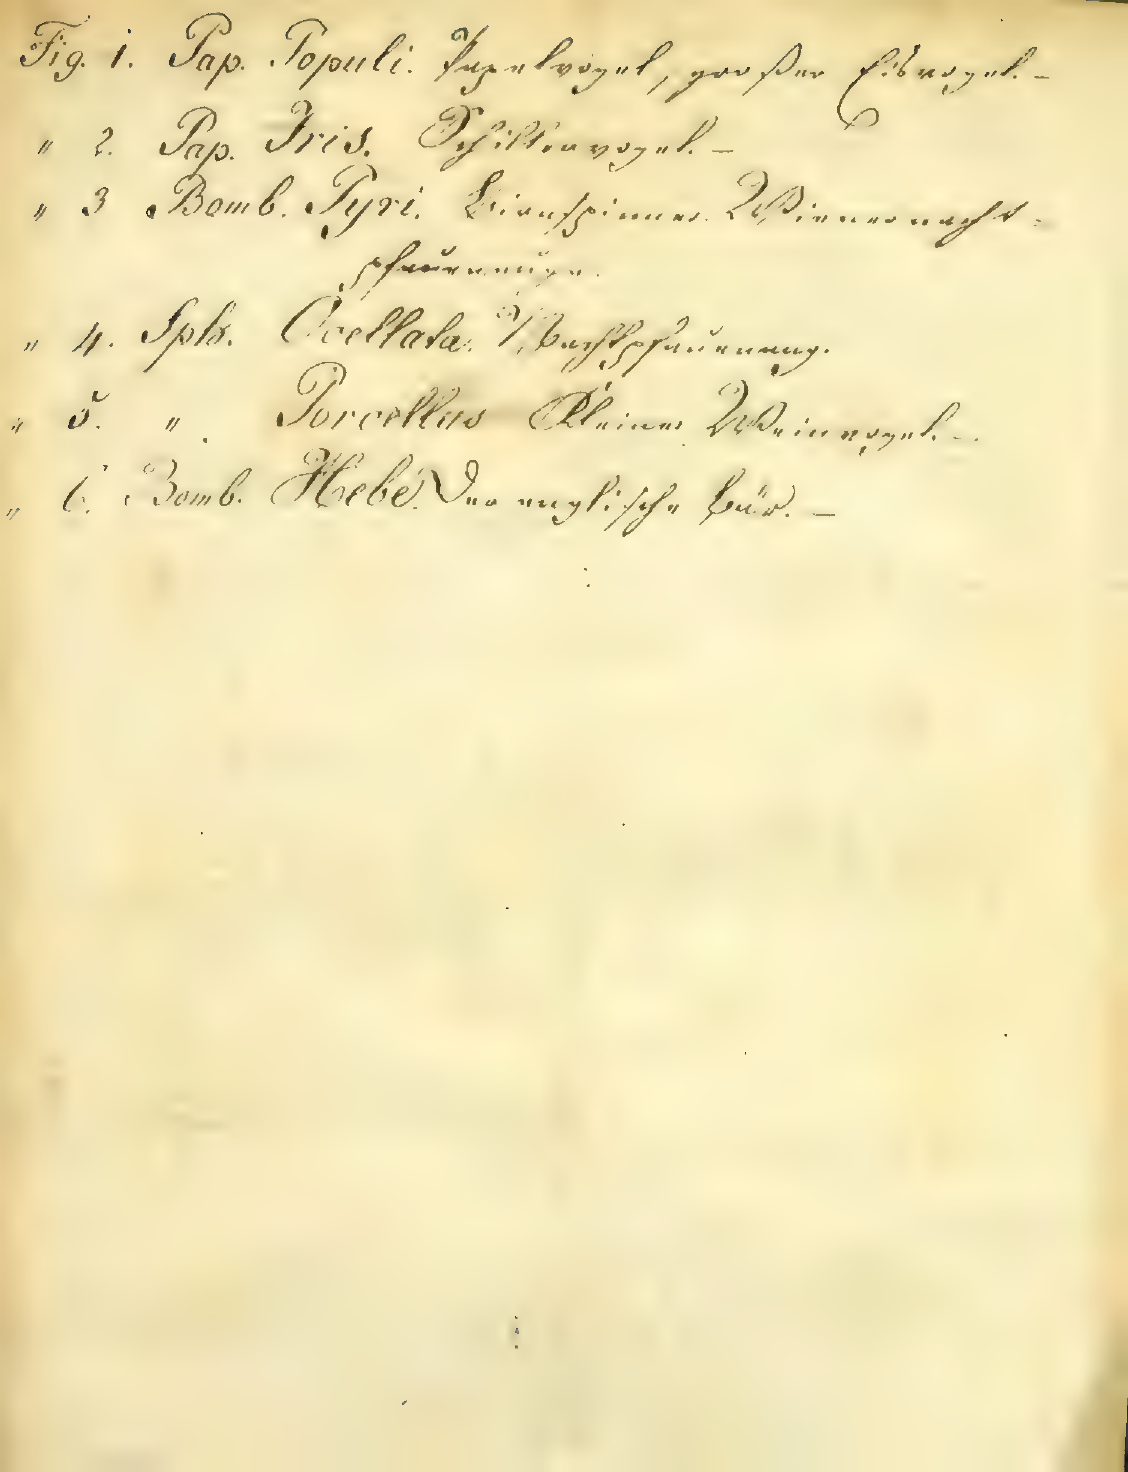 Fig. 1. Pap. Populi. Papelvogel, großer Eisvogel. –
" 2. Pap. Iris. Schillervogel. –
" 3 Bomb. Pyri. Birnspinner. Wienernacht-
pfauenauge.
" 4. Sph. Ocellata. Nachtpfauenaug.
" 5. " Porcellus Kleiner Weinvogel. –
" 6. Bomb. Hebe. Der englische Bär. –